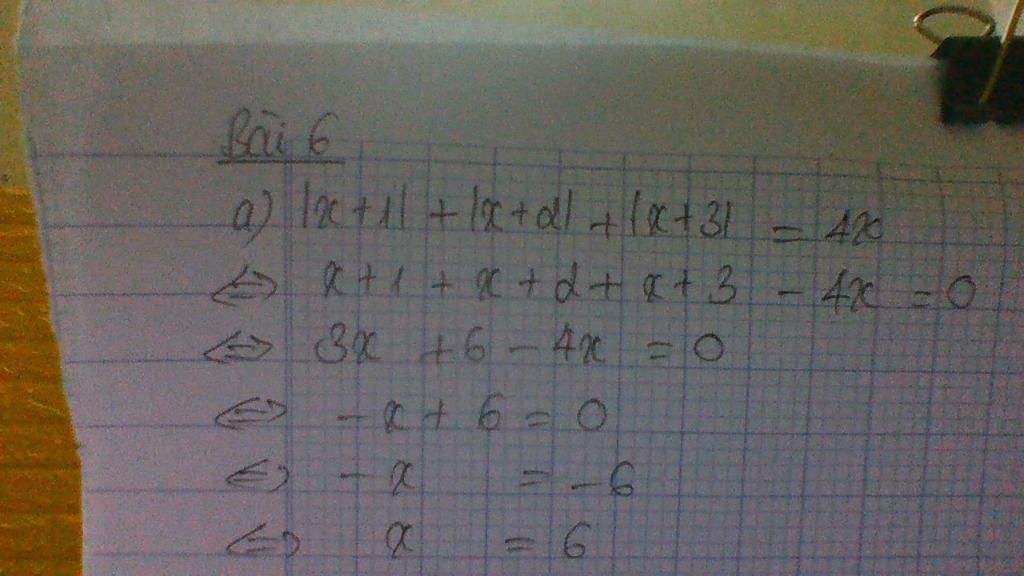 Bài 6
a) |x+1| + |x+2| + |x+3| = 4x
<=> x+1 + x+2 + x+3 - 4x = 0
<=> 3x + 6 - 4x = 0
<=> -x + 6 = 0
<=> -x = -6
<=> x = 6